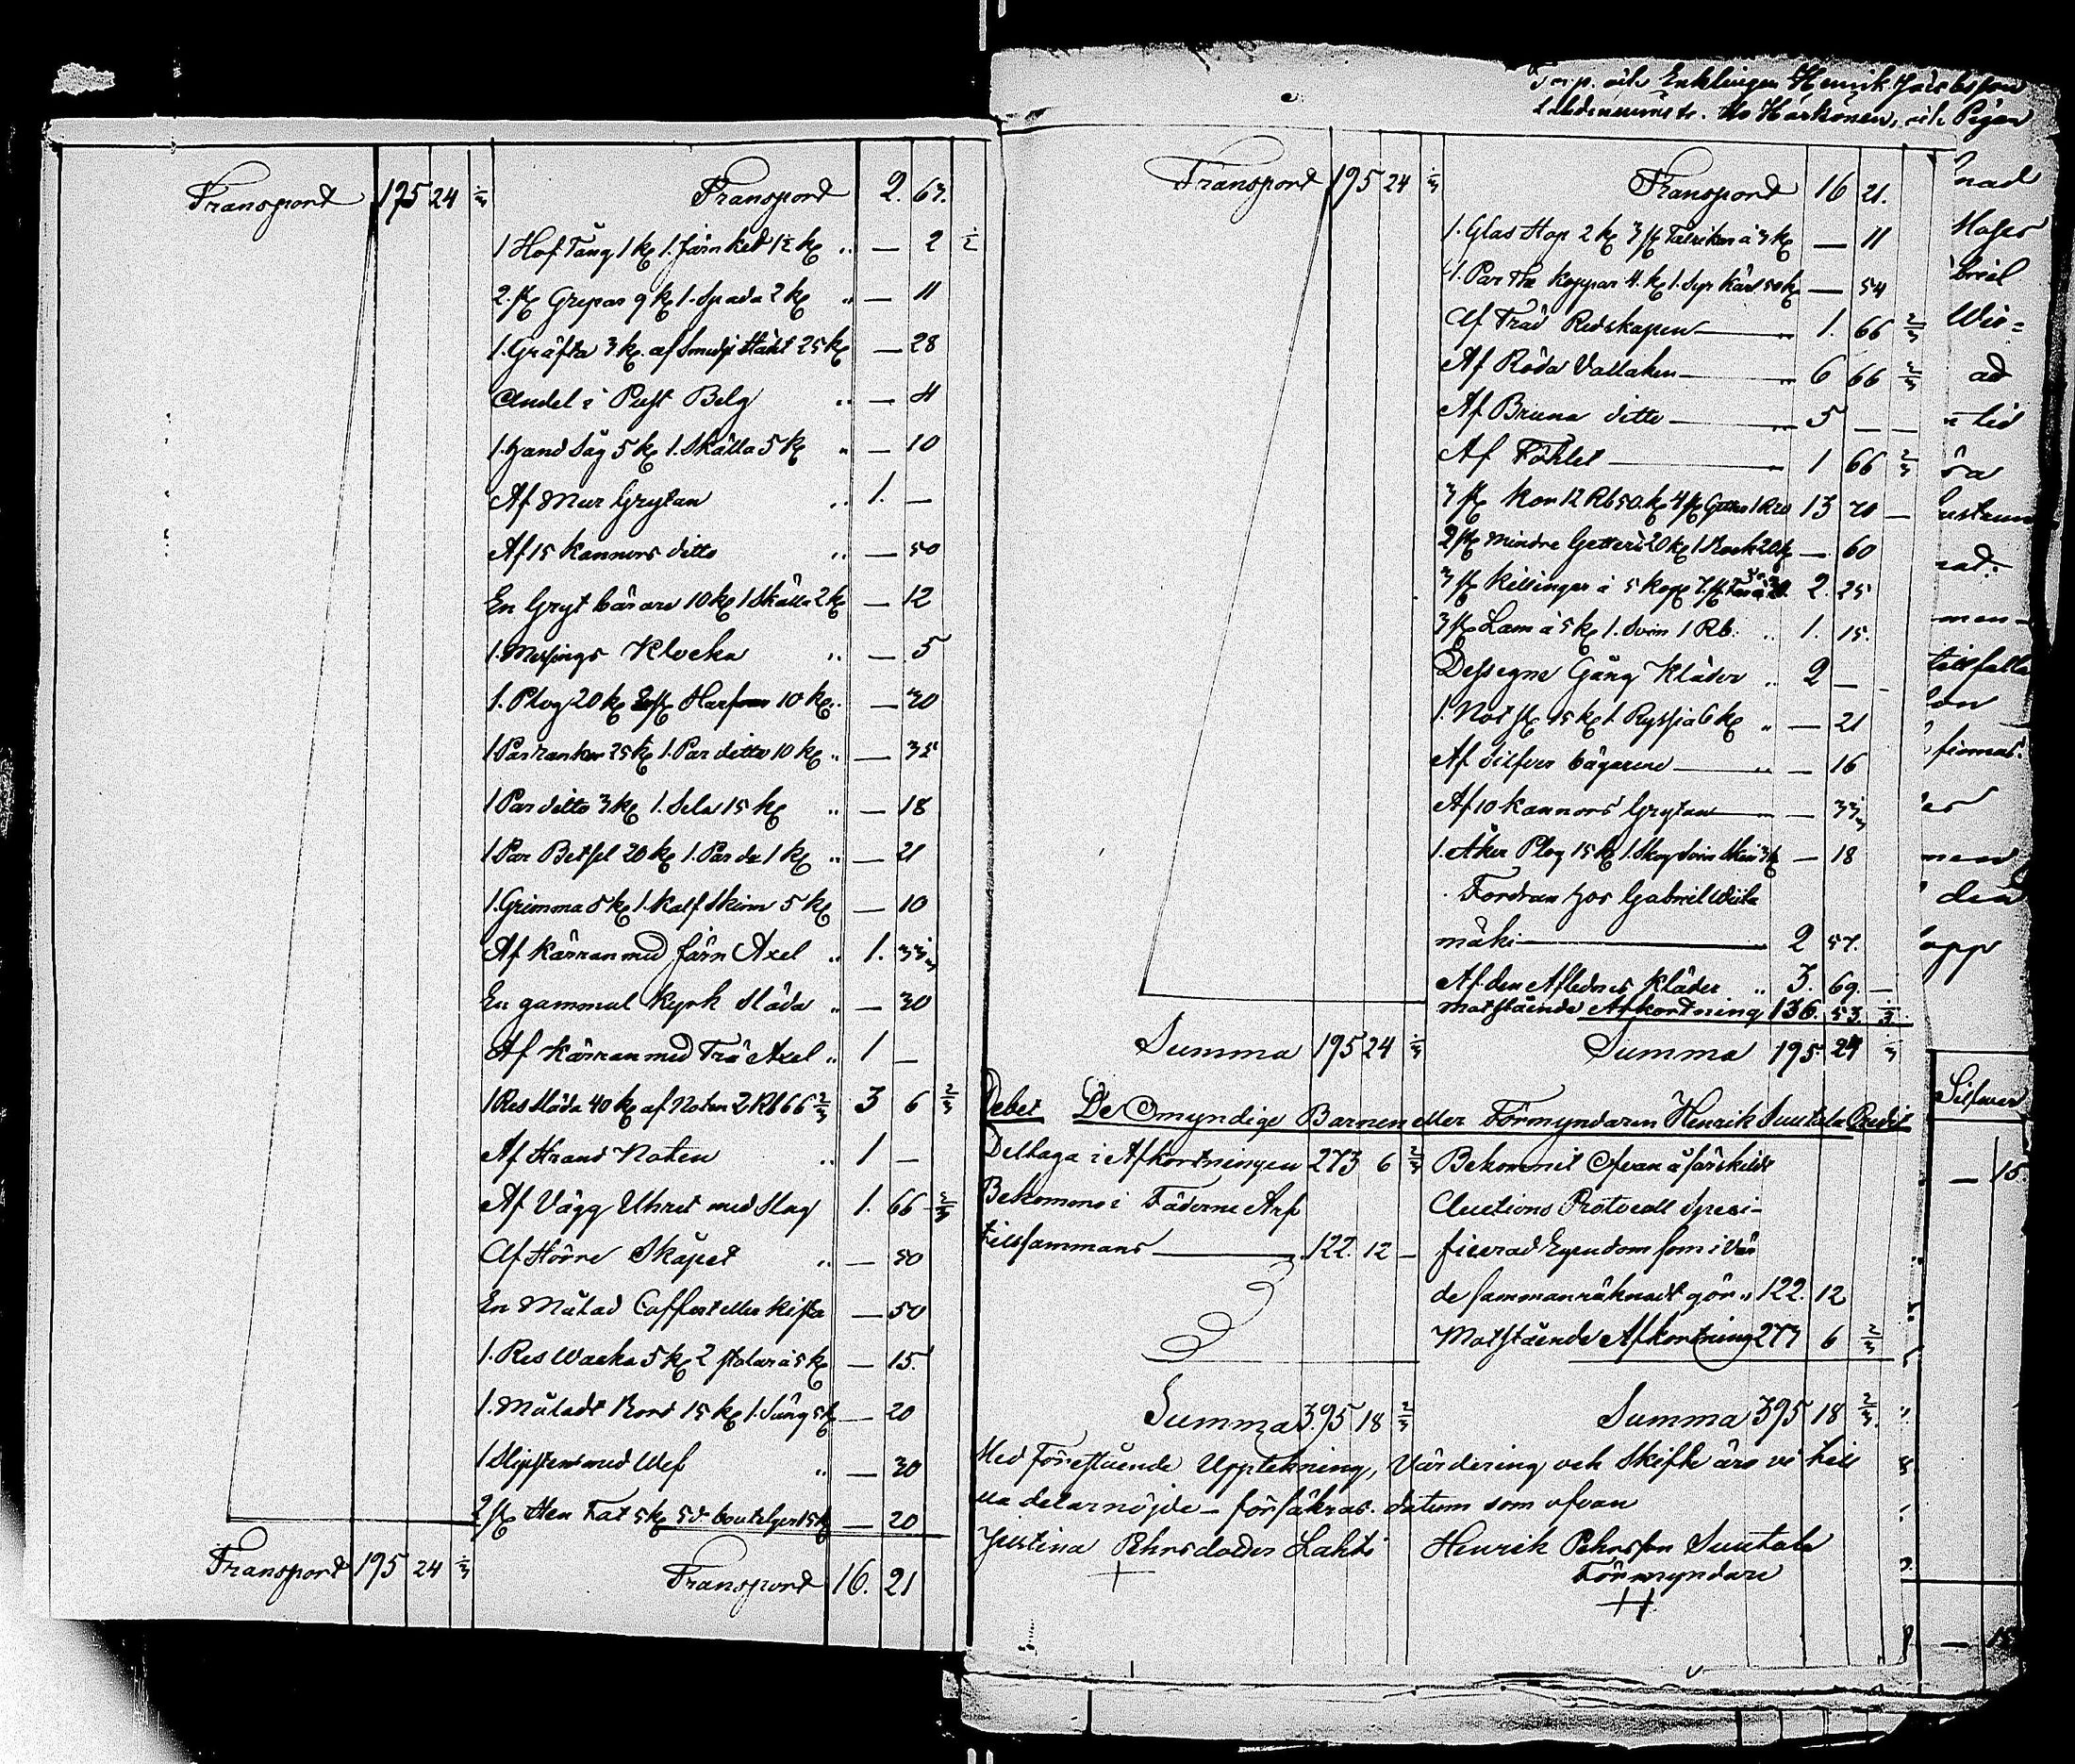 Transport 195 24 1/3 Transport 2. 63.
1 Hof Tång 1 k 1. järn ked 1½ k „ — 2 ½
2. st Grepar 9 k 1. Spada 2 k „ — 11
1. Gräfta 3 k. af Smidje Städt 25 k — 28
Andel i Pust Belg „ — 4
1. Hand Såg 5 k 1. Skälla 5 k „ — 10
Af Mur Grytan „ 1. —
Af 15 kannors ditto „ — 50
En Gryt bärare 10 k 1 Skälla 2 k — 12
1. Messings Klocka „ — 5
1. Plog 20 k Harfvar 10 k „ — 30
1 Par rankor 25 k 1. Par ditto 10 k „ — 35
1 Par ditto 3 k 1. Sela 15 k „ — 18
1 Par Betsel 20 k 1. Par do 1 k „ — 21
1. Grimma 5 k 1. Kalf Skinn 5 k — 10
Af Kärran med järn Axel „ 1. 33 1/3
En gammal Kyrk Släda „ — 30
Af Kärran med Trä Axel „ 1 —
1 Res Släda 40 k af Noten 2 Rb 66 2/3 3 6 2/3
Af Strand Noten „ 1 —
Af Vägg Uhret med Slag 1. 66 2/3
Af Större Skåpet „ — 50
En Målad Coffert eller Kista — 50
1. Res Wacka 5 k 2 stolar à 5 k — 15.
1. Måladt Bord 15 k 1. Säng 5 k — 20
1 Slipsten med Wef „ — 30
2 st Sten Fat 5 k 5 st bouteljer 15 k — 20
Transport 195 24 1/3 Transport 16. 21
Torp. och Enklingen Henrik Jacobsson
Härkönen, och Pigan
Transport 195 24 1/3 Transport 16 21.
1. Glas Stop 2 k 3 st Talriken à 3 k — 11
1. Par The koppar 4. k 1. Syr Kärl 50 k — 54
Af Träd Redskapen — „ 1. 66 2/3
Af Röda Vallaken — „ 6 66 2/3
Af Bruna ditto — „ 5 — —
Af Föhlet — „ 1 66 2/3
3 st Kor 12 Rb 50. k 4 st Getter 1 R 20 13 70 —
2 st mindre Getter à 20 k 1 Bock 20 k — 60
3 st Killingar à 5 kop 7. st Får à 30. 2. 25
3 st Lam à 5 k 1. Svin 1 Rb. „ 1. 15.
Dess egne Gång Kläder „ 2 — —
1. Not st 15 k 1. Ryssja 6 k „ — 21
Af Silfver bägarene — „ — 16
Af 10 kannors Grytan — — 33 1/3
1. Åker Plog 15 k 1. Skog Svin Sken 3 k — 18
Fordran hos Gabriel Wiita
mäki — 2 57.
Af den Aflednes Kläder „ 3. 69. —
motstående Afkortning 136. 53 1/3
Summa 195 24 1/3 Summa 195. 24 1/3
Debet De Omyndige Barnen eller Förmyndaren Henrik Suutala Credit
Deltaga i Afkortningen 273 6 2/3 Bekommit Ofvan å särskildt
Bekomma i Fäderne Arf Auctions Protocoll Speci-
tillsammans — 122. 12 — ficerad Egendom som i Vär
de sammanräknadt gör „ 122. 12
Motstående Afkortning 273 6 2/3
Summa 395 18 2/3 Summa 395 18 2/3
Med förestående Upptekning, Värdering och Skifte äro vi till
alla delar nöjde – försäkras. datum som ofvan
Justina Pehrsdotter Lahti Henrik Pehrsson Suutala
Förmyndare
Silfver
— 15.